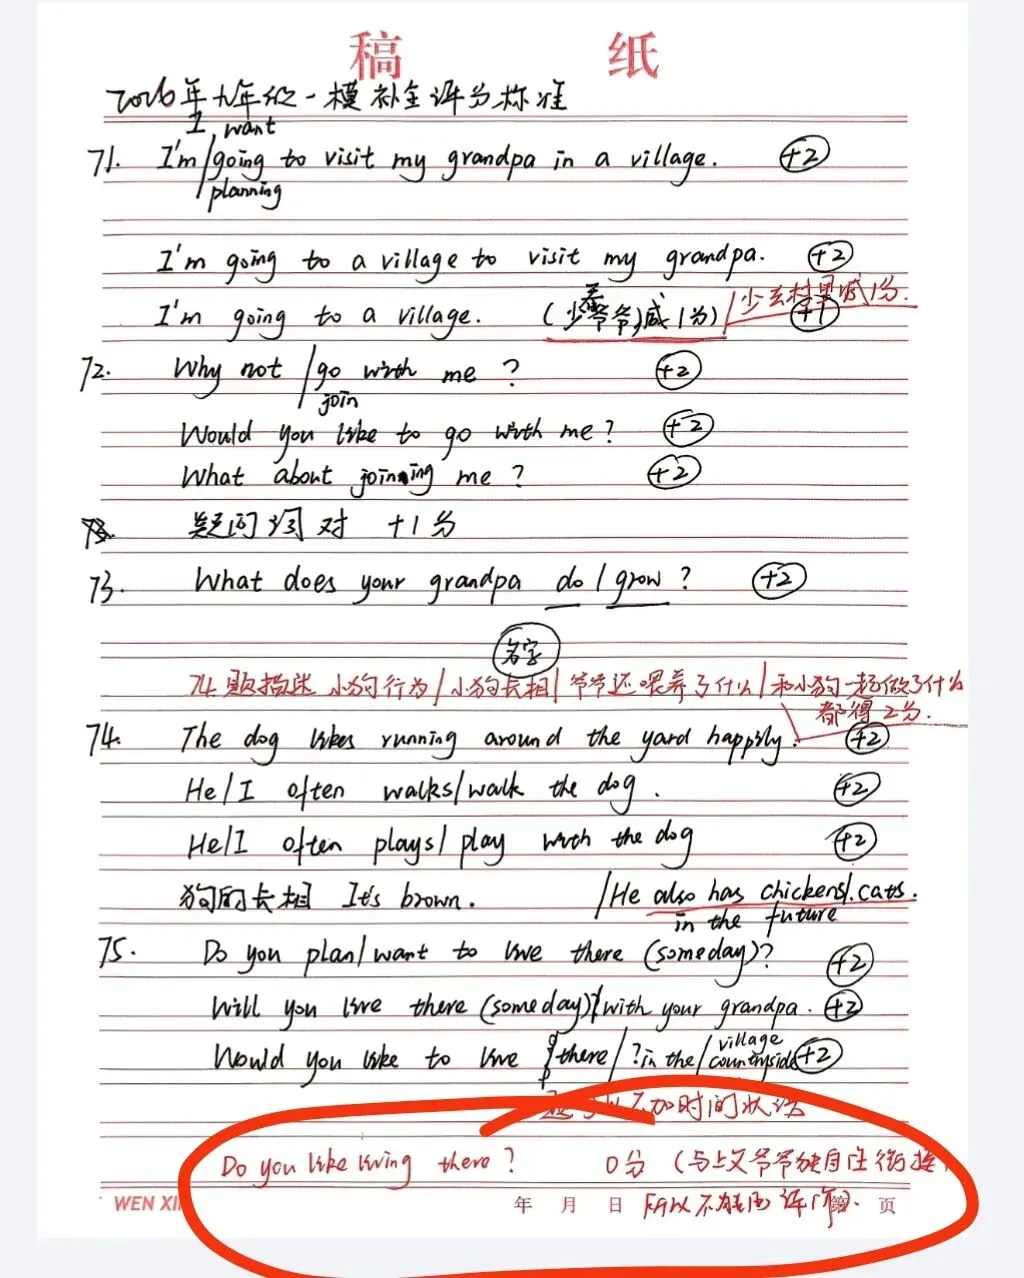 稿 纸
2026年九年级一模补全评分标准
I want
71. I'm/going to visit my grandpa in a village. +2
planning
I'm going to a village to visit my grandpa. +2
I'm going to a village. (少看爷爷减1分)/少去村里减1分. +1
72. Why not /go with me ? +2
join
Would you like to go with me? +2
What about joining me ? +2
疑问词对 +1分
73. What does your grandpa do / grow ? +2
名字
74题描述 小狗行为/小狗长相/爷爷还喂养了什么/和小狗一起做了什么
都得2分.
74. The dog likes running around the yard happily. +2
He/I often walks/walk the dog. +2
He/I often plays/play with the dog +2
狗的长相 It's brown. /He also has chickens/.cats.
in the future
75. Do you plan/want to live there (someday)? +2
Will you live there (someday)/with your grandpa. +2
village
Would you like to live there/?in the/countryside +2
不加时间状语
Do you like living there? 0分 (与上文爷爷独自住衔接
WEN XI 年 月 日 所以不能 第 页